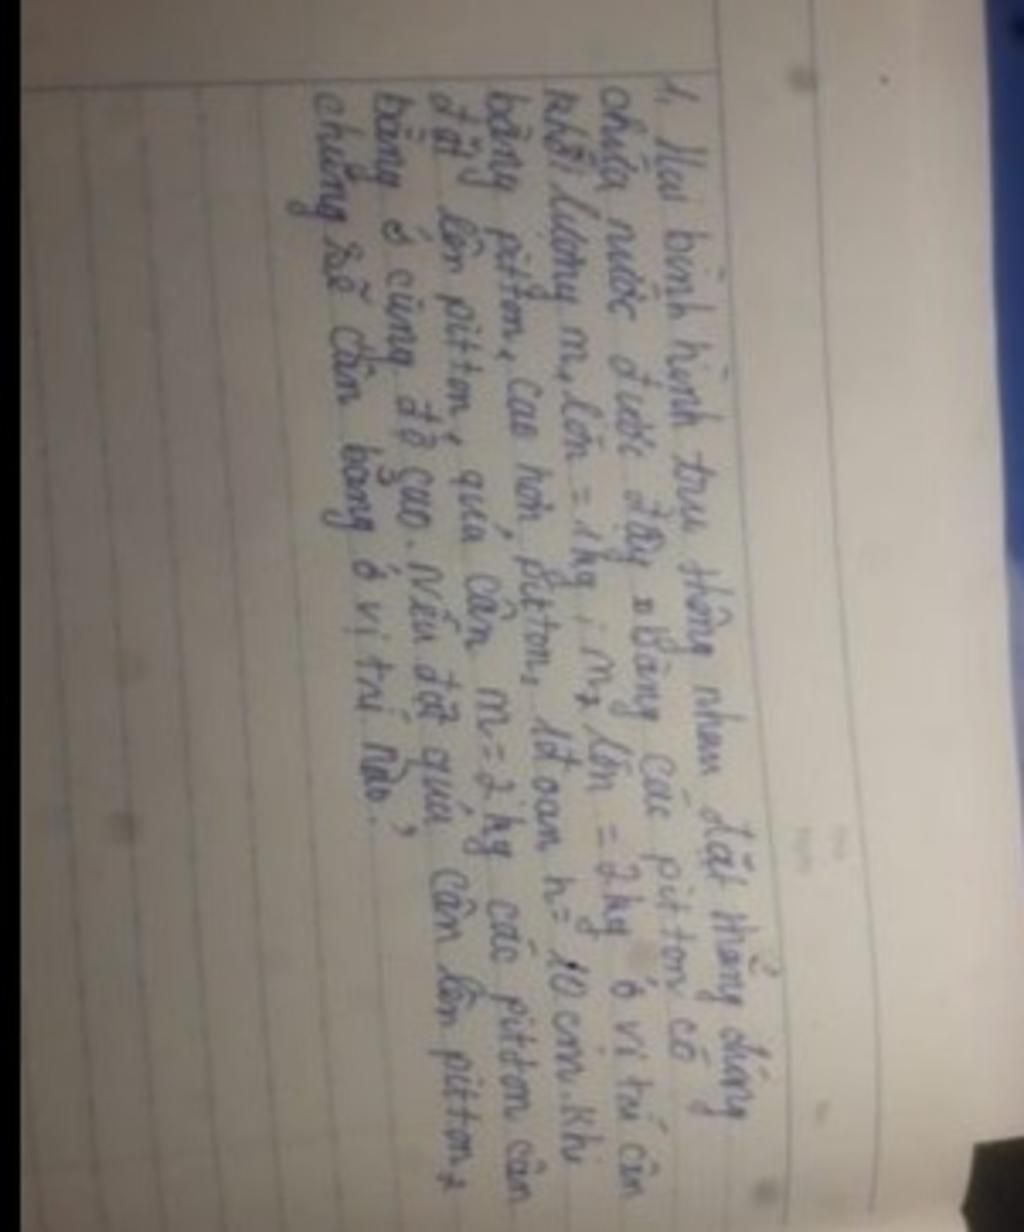 1. Hai bình hình trụ thông nhau đặt thẳng đứng
chứa nước được đậy bằng các pitton có
khối lượng m₁ lớn = 1kg, m₂ lớn = 2kg ở vị trí cân
bằng pitton₁ cao hơn pitton₂ 1 đoạn h = 10 cm. Khi
đặt lên pitton₁ quả cân m = 2kg các pitton cân
bằng ở cùng độ cao. Nếu đặt quả cân lên pitton₂
chúng sẽ cân bằng ở vị trí nào?